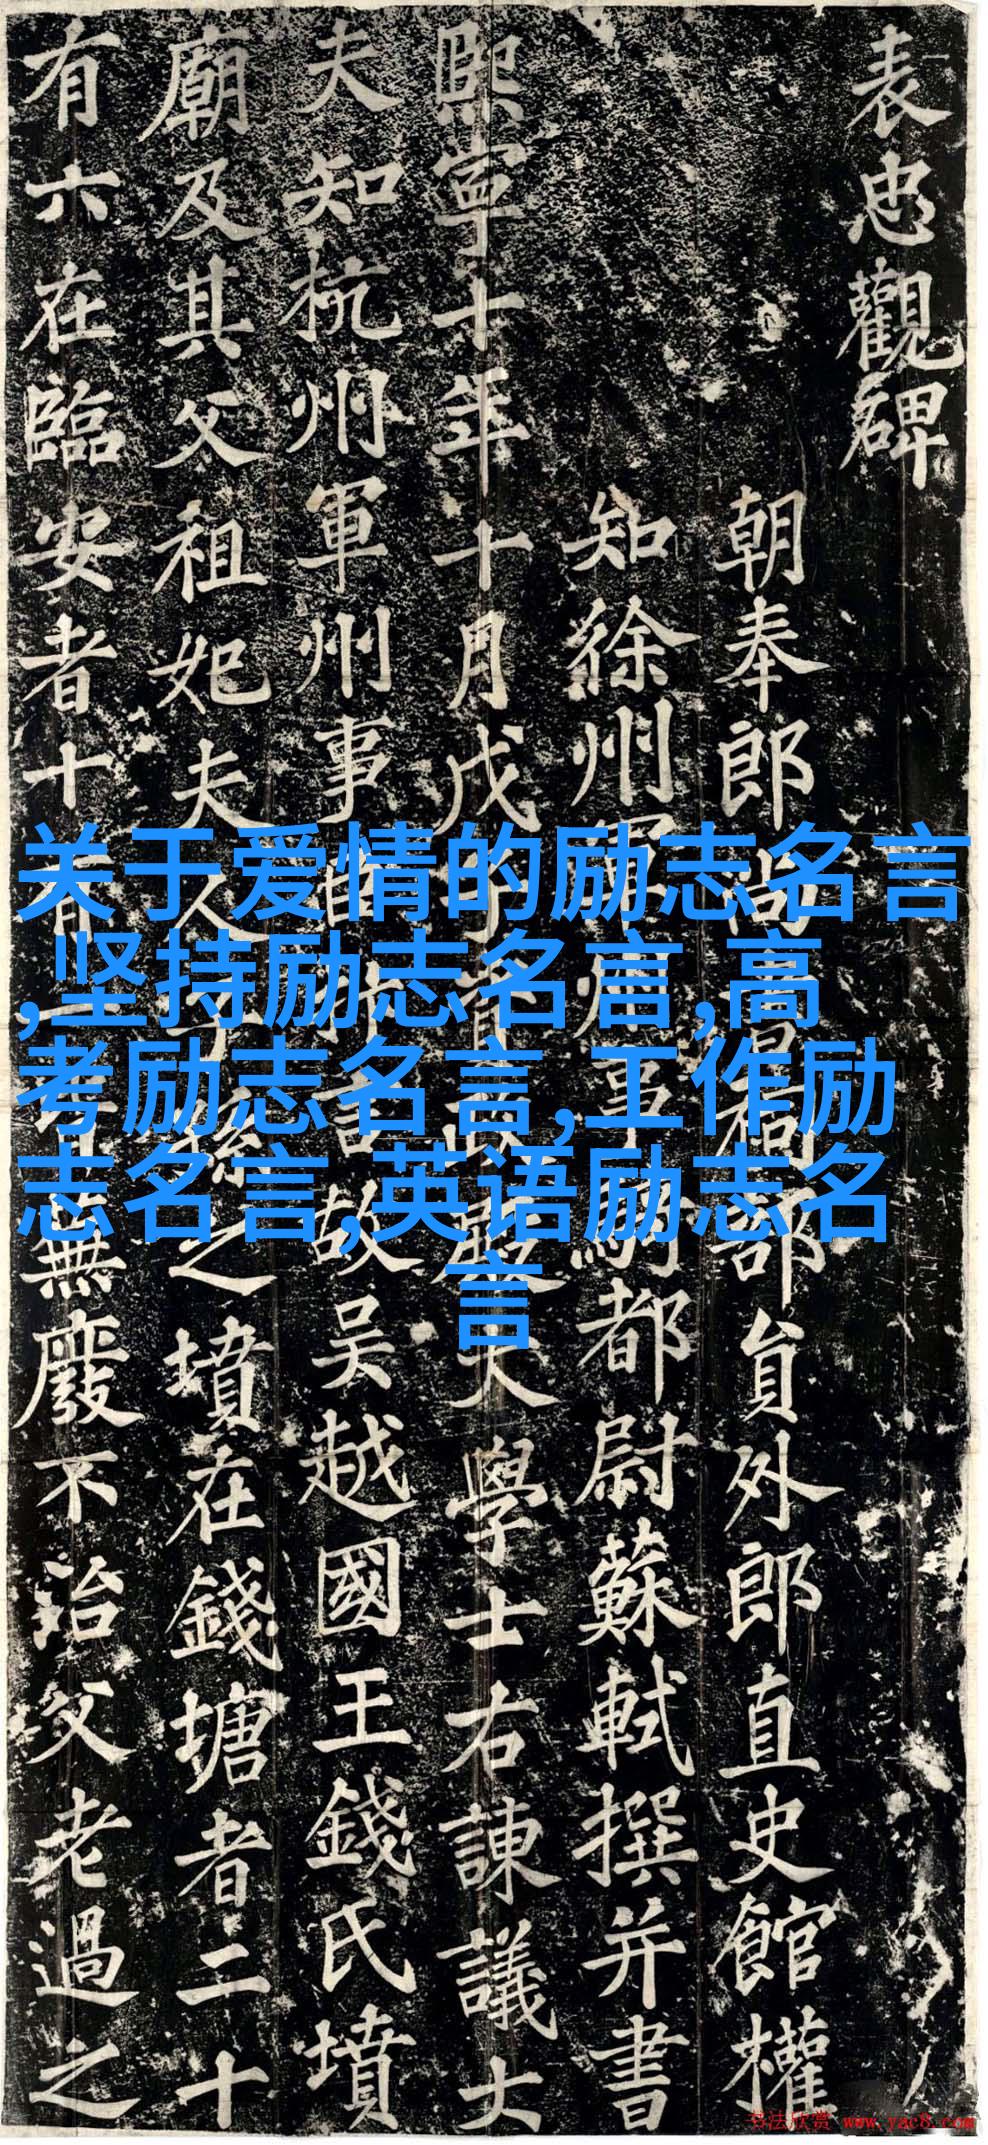 表忠觀碑
朝奉郎尚 部員外郎直史館權
知徐州軍州事 都尉蘇軾撰并書
熙寧十年十月戊子 大學士右諫議大
夫知杭州軍州事 言故吳越國王錢氏墳
廟及其父祖妃夫人子孫之墳在錢塘者二十
有六在臨安者十有一 無廢不治父老過之
关于爱情的励志名言
,坚持励志名言,高
考励志名言,工作励
志名言,英语励志名
言
书法欣赏 www.yac8.com